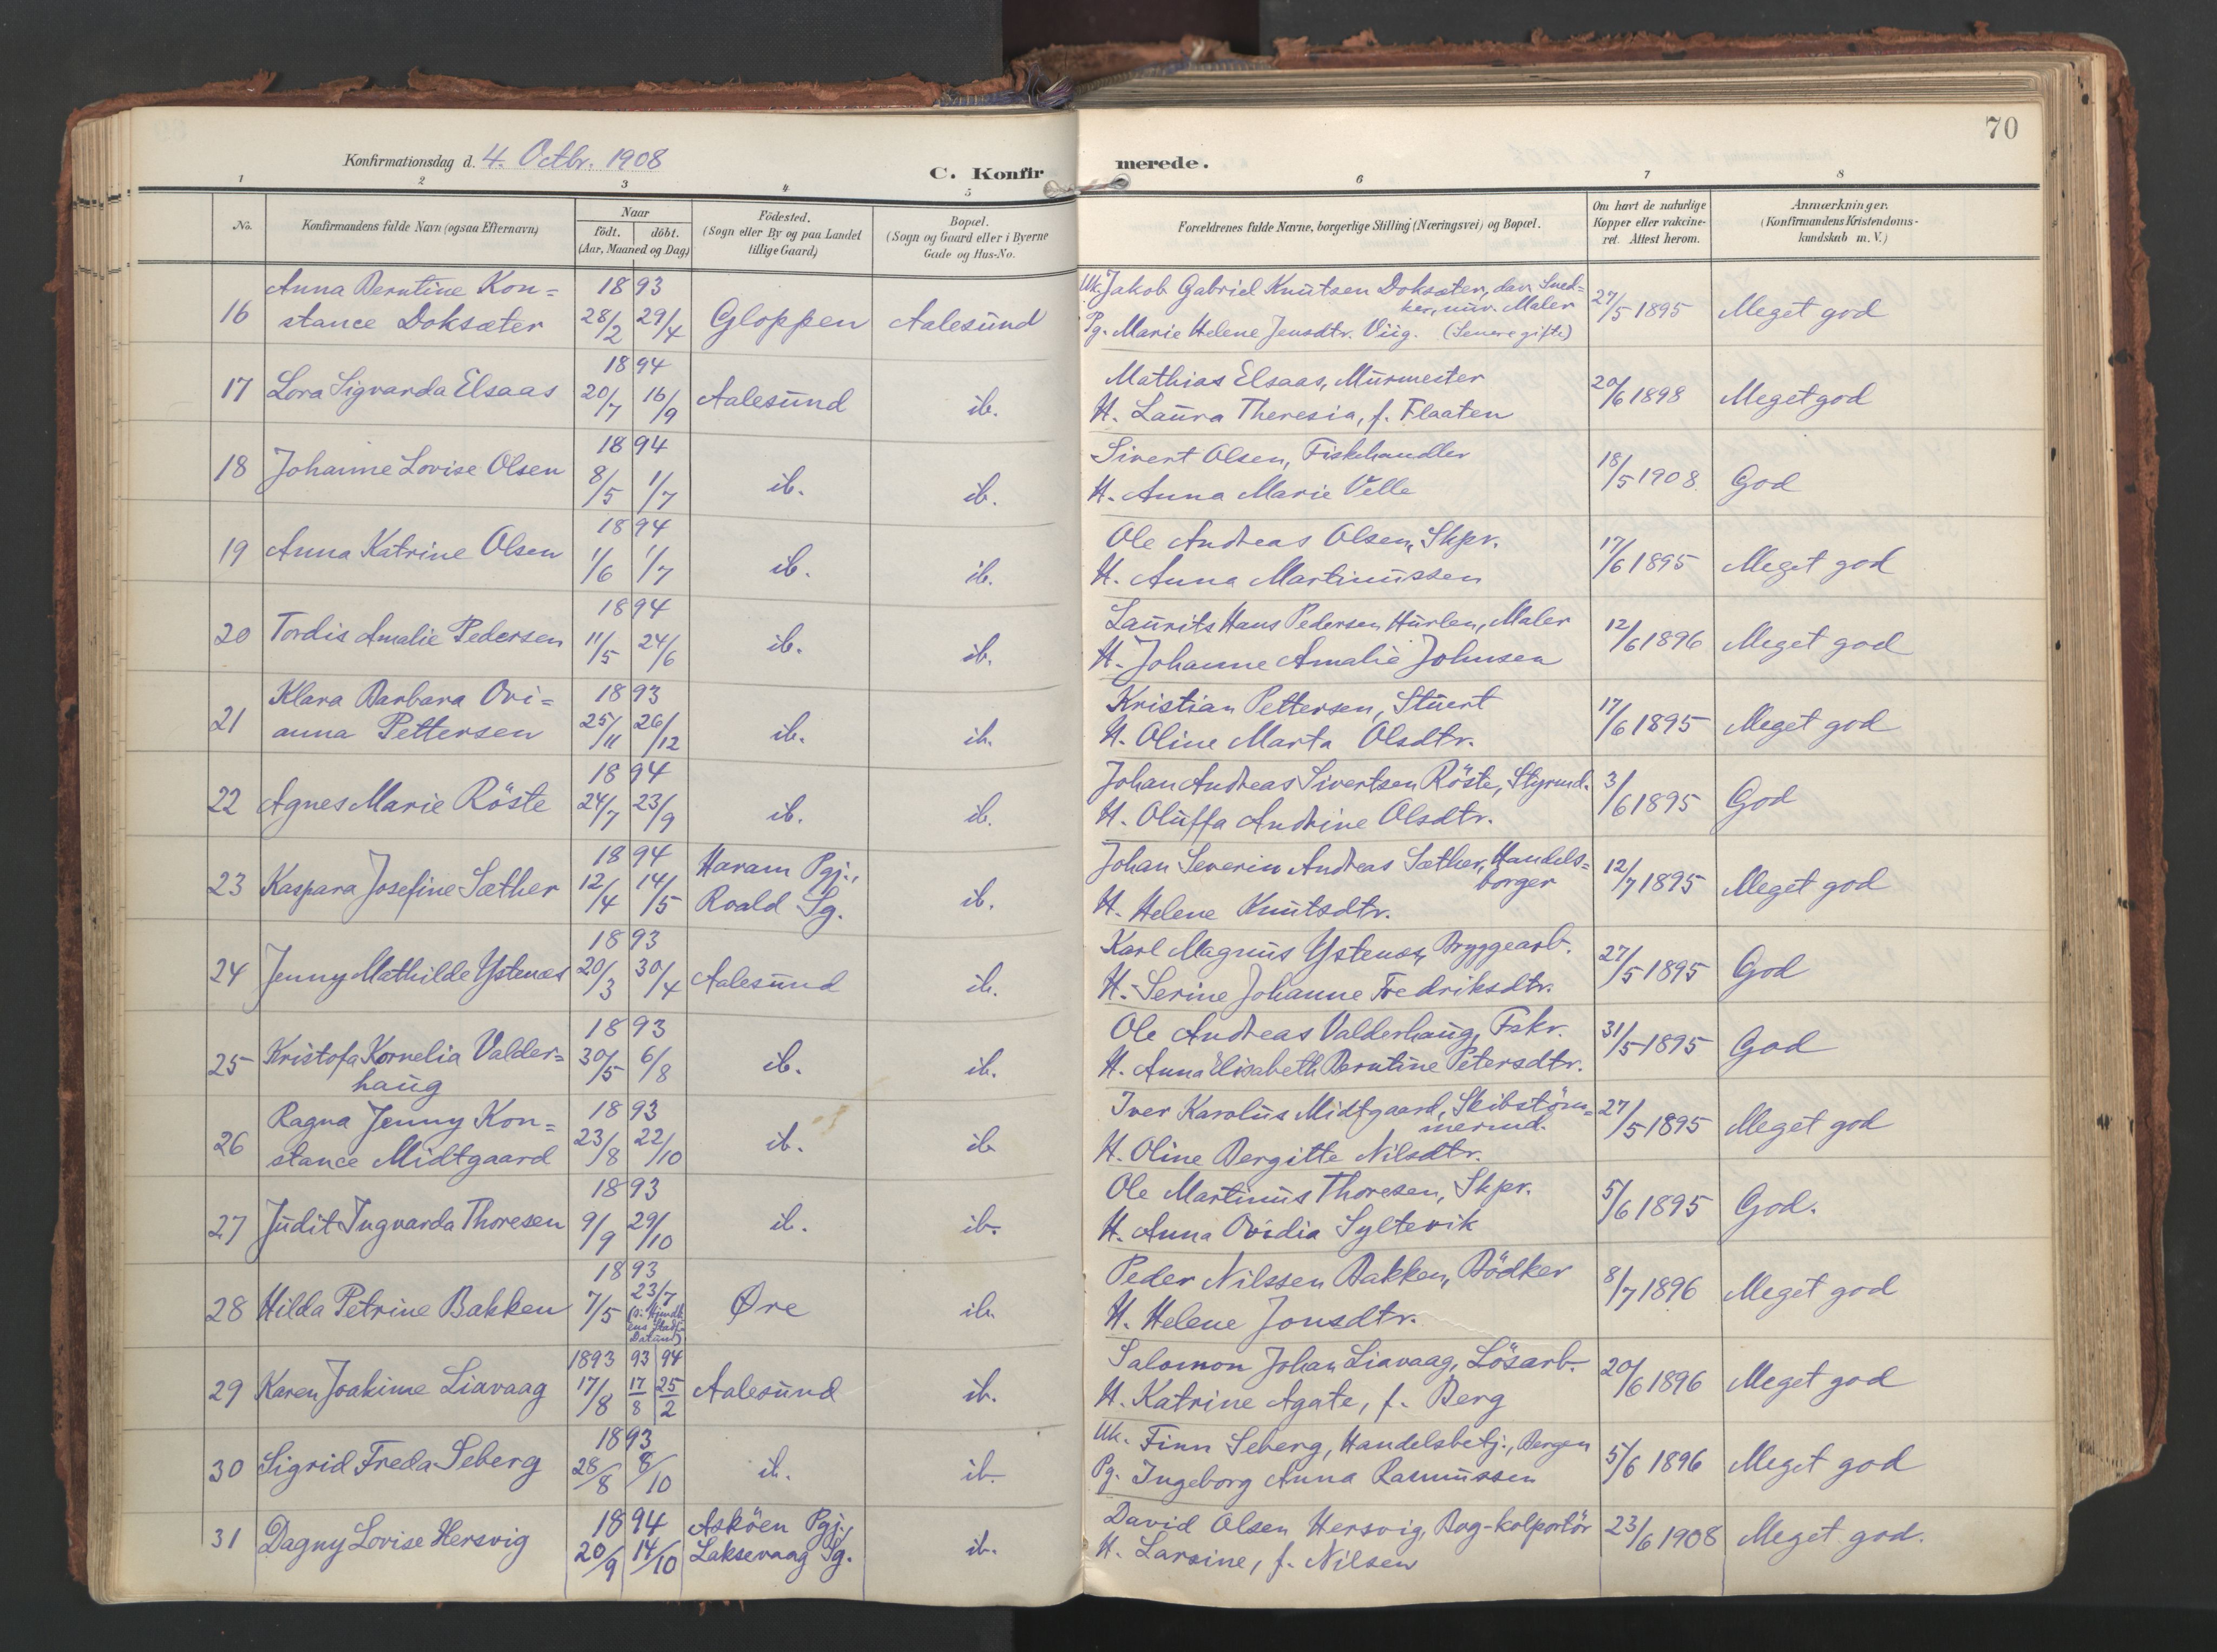 70
Konfirmationsdag d. 4. Octbr. 1908
C. Konfirmerede.
1 2 3 4 5 6 7 8
No.
Konfirmandens fulde Navn (ogsaa Efternavn)
Naar
födt. döbt.
(Aar, Maaned og Dag)
Födested.
(Sogn eller By og paa Landet
tillige Gaard)
Bopæl.
(Sogn og Gaard eller i Byerne
Gade og Hus-No.
Forældrenes fulde Navne, borgerlige Stilling (Næringsvei) og Bopæl.
Om havt de naturlige
Kopper eller vakcine-
ret. Attest herom.
Anmærkninger.
(Konfirmandens Kristendoms-
kundskab m. V.)
Anna Berntine Kon= 1893 Uk. Jakob Gabriel Knutsen Doksæter, dav. Sned=
16 stance Doksæter 28/2 29/4 Gloppen Aalesund ker, nuv. Maler 27/5 1895 Meget god
Pg. Marie Helene Jensdtr. Viig. (Senere gifte)
1894 Mathias Elsaas, Murmester
17 Lora Sigvarda Elsaas 20/7 16/9 Aalesund ib. 20/6 1898 Meget god
H. Laura Theresia, f. Flaaten
1894 Sivert Olsen, Fiskehandler
18 Johanne Lovise Olsen 8/5 1/7 ib. ib. 18/5 1908 God
H. Anna Marie Velle
1894 Ole Andreas Olsen, Skpr.
19 Anna Katrine Olsen 1/6 1/7 ib. ib. 17/6 1895 Meget god
H. Anna Martinussen
1894 Laurits Hans Pedersen Hurlen, Maler
20 Tordis Amalie Pedersen 11/5 24/6 ib. ib. 12/6 1896 Meget god
H. Johanne Amalie Johnsen
Klara Barbara Ovi= 1893 Kristian Pettersen, Stuert
21 anna Pettersen 25/11 26/12 ib. ib. 17/6 1895 Meget god
H. Oline Marta Olsdtr.
1894 Johan Andreas Sivertsen Röste, Styrmd.
22 Agnes Marie Röste 24/7 23/9 ib. ib. 3/6 1895 God
H. Oluffa Andrine Olsdtr.
1894 Haram Pgj., Johan Severin Andreas Sæther, Handels=
23 Kaspara Josefine Sæther 12/4 14/5 Roald Sg. ib. borger 12/7 1895 Meget god
H. Helene Knutsdtr.
1893 Karl Magnus Ystenæs, Bryggearb.
24 Jenny Mathilde Ystenæs 20/3 30/4 Aalesund ib. 27/5 1895 God
H. Serine Johanne Fredriksdtr.
1893 Ole Andreas Valderhaug, Fskr.
25 Kristofa Kornelia Valder= 30/5 6/8 ib. ib. 31/5 1895 God
haug H. Anna Elisabeth Berntine Petersdtr.
Ragna Jenny Kon= 1893 Iver Karolus Midtgaard, Skibstöm=
26 stance Midtgaard 23/8 22/10 ib. ib mermd. 27/5 1895 Meget god
H. Oline Bergitte Nilsdtr.
1893 Ole Martinus Thoresen, Skpr.
27 Judit Ingvarda Thoresen 9/9 29/10 ib. ib. 5/6 1895 God.
H. Anna Ovidia Syltevik
1893 Peder Nilssen Bakken, Bödker
28 Hilda Petrine Bakken 7/5 23/7 Øre ib. 8/7 1896 Meget god
H. Helene Jonsdtr.
1893 93 94 Salomon Johan Liavaag, Lösarb.
29 Karen Joakime Liavaag 17/8 17/8 25/2 Aalesund ib. 20/6 1896 Meget god
H. Katrine Agate, f. Berg
1893 Uk. Finn Seberg, Handelsbetj., Bergen
30 Sigrid Freda Seberg 28/8 8/10 ib. ib. 5/6 1896 Meget god
Pg. Ingeborg Anna Rasmussen
1894 Asköen Pgj., David Olsen Hersvig, Bog-kolportör
31 Dagny Lovise Hersvig 20/9 14/10 Laksevaag Sg. ib. 23/6 1908 Meget god.
H. Larsine, f. Nilsen